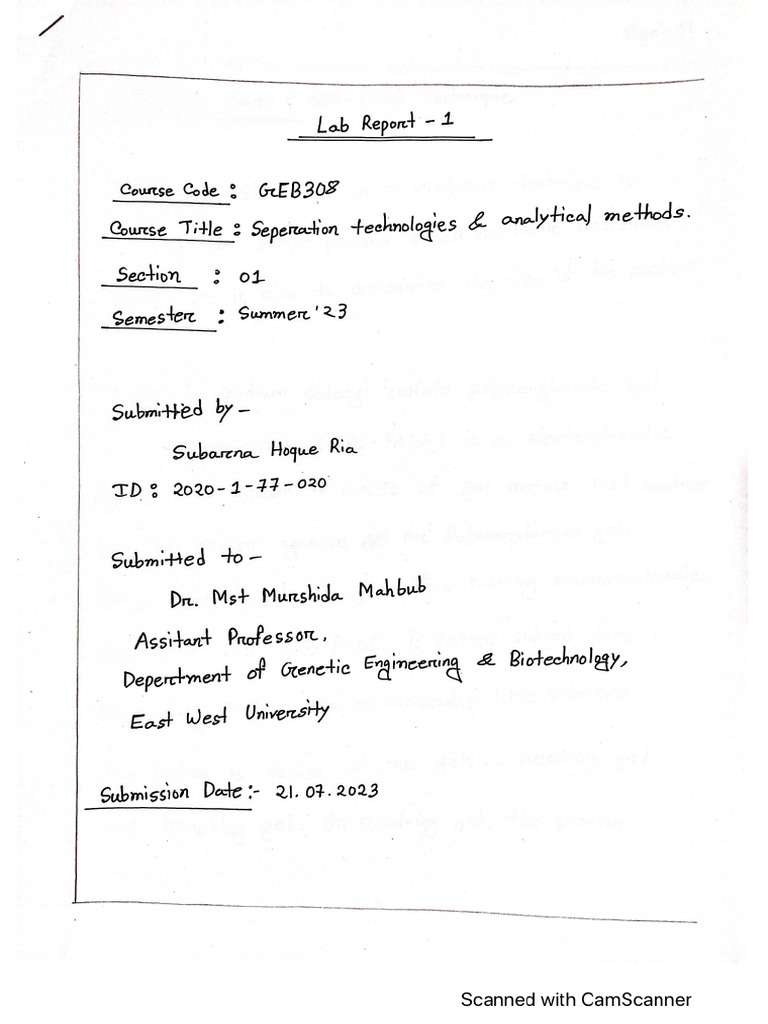 Lab Report - 1
Course Code : GEB308
Course Title : Seperation technologies & analytical methods.
Section : 01
Semester : Summer '23
Submitted by -
Subarna Hoque Ria
ID : 2020-1-77-020
Submitted to -
Dr. Mst Murshida Mahbub
Assitant Professor,
Depertment of Genetic Engineering & Biotechnology,
East West University
Submission Date :- 21.07.2023
Scanned with CamScanner